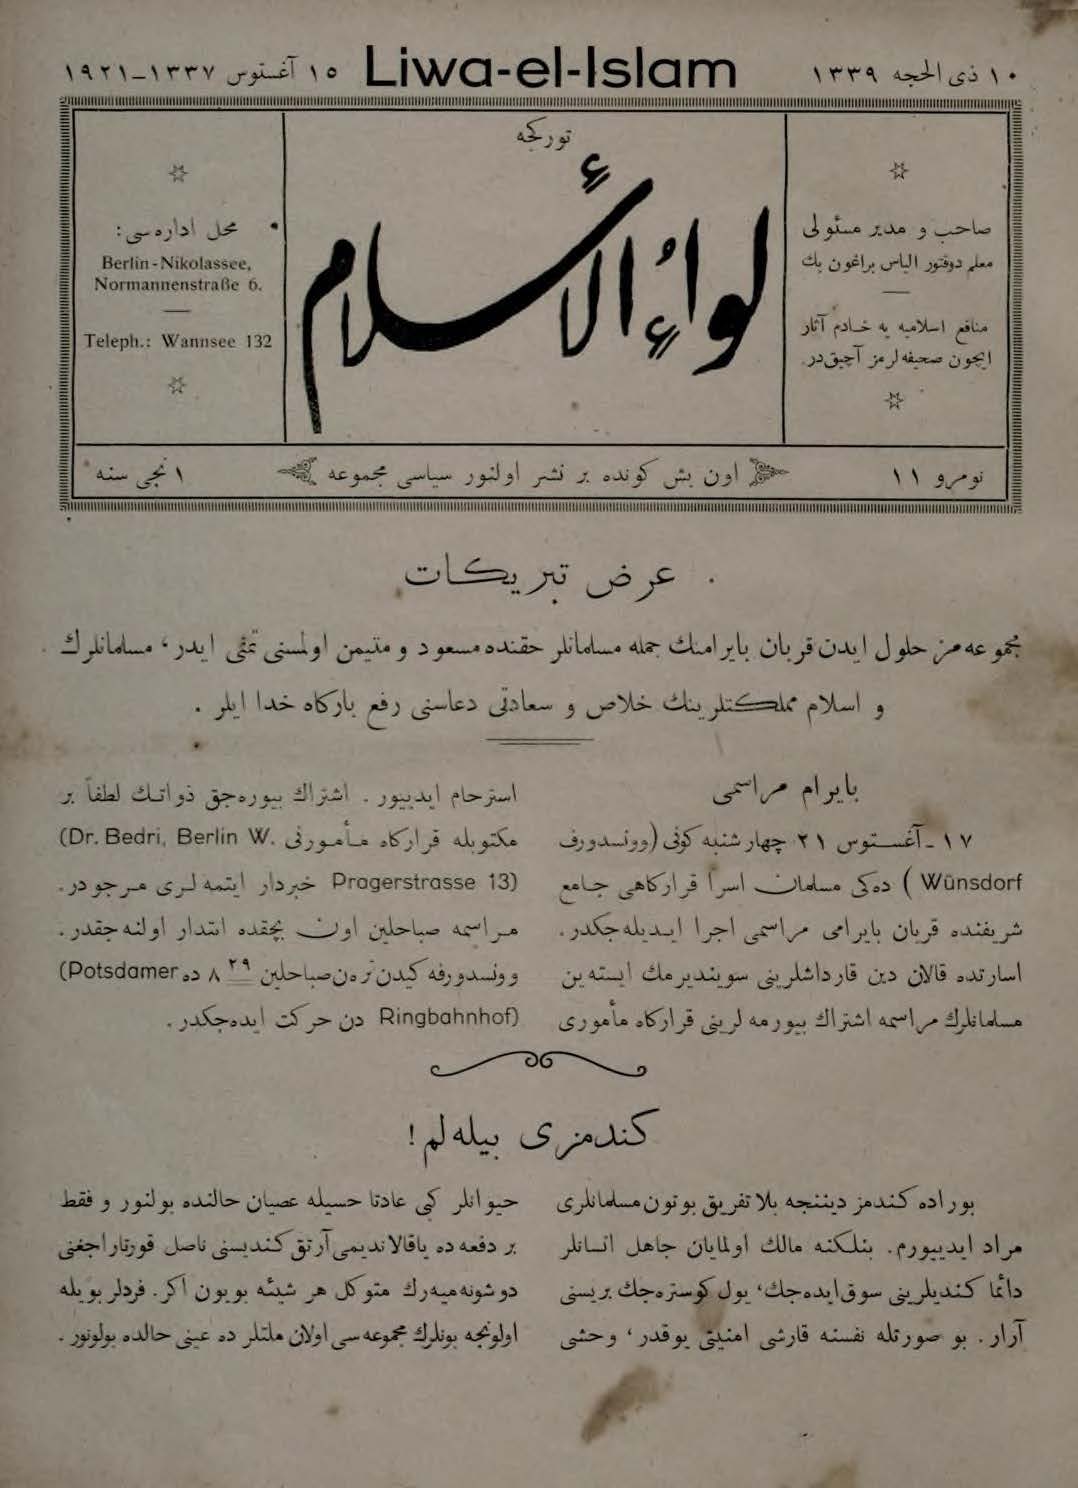 ١٠ ذى الحجه ١٣٣٩
Liwa-el-Islam
١٥ آغستوس ١٣٣٧–١٩٢١
صاحب و مدير مسئولى
معلم دوقتور الياس براغون بك
منافع اسلاميه يه خادم آثار
ايچون صحيفه لرمز آچيق در.
توركجه
لواء الاسلام
محل اداره سى:
Berlin-Nikolassee,
Normannenstraße 6.
Teleph.: Wannsee 132
نومرو ١١
اون بش كونده بر نشر اولنور سياسى مجموعه
١ نجى سنه
عرض تبريكات
مجموعه مز حلول ايدن قربان بايرامنك جمله مسلمانلر حقنده مسعود و متيمن اولمسنى تمنى ايدر، مسلمانلرك
و اسلام مملكتلرينك خلاص و سعادتى دعاسنى رفع باركاه خدا ايلر .
بايرام مراسمى
١٧ـ آغستوس ٢١ چهارشنبه كونى (وونسدورف
Wünsdorf ) ده كى مسلمان اسرا قراركاهى جامع
شريفنده قربان بايرامى مراسمى اجرا ايديله جكدر.
اسارتده قالان دين قارداشلرينى سوينديرمك ايسته ين
مسلمانلرك مراسمه اشتراك بيورمه لرينى قراركاه مأمورى
استرحام ايدييور . اشتراك بيوره جق ذواتك لطفاً بر
مكتوبله قراركاه مأمورنى (Dr. Bedri, Berlin W.
Pragerstrasse 13) خبردار ايتمه لرى مرجودر.
مراسمه صباحلين اون بچقده ابتدار اولنه جقدر.
وونسدورفه كيدن ترەن صباحلين ٨ ٢٩ ده (Potsdamer
Ringbahnhof) دن حركت ايده جكدر.
كندمزى بيله لم !
بوراده كندمز ديننجه بلا تفريق بوتون مسلمانلرى
مراد ايدييورم. بنلكنه مالك اولمايان جاهل انسانلر
دائما كنديلرينى سوق ايده جك، يول كوستره جك بريسنى
آرار. بو صورتله نفسنه قارشى امنيتى يوقدر، وحشى
حيوانلر كبى عادتا حسيله عصيان حالنده بولنور و فقط
بر دفعه ده ياقالانديمى آرتق كنديسنى ناصل قورتاراجغنى
دوشونه ميه رك متوكل هر شيئه بويون اكر. فردلر بويله
اولونجه بونلرك مجموعه سى اولان ملتلر ده عينى حالده بولونور.